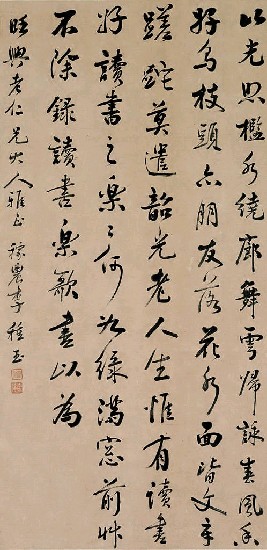 山光照檻水繞廊舞雩歸詠春風香
好鳥枝頭亦朋友落花水面皆文章
蹉跎莫遣韶光老人生惟有讀書
好讀書之樂〻何如綠滿窗前艸
不除錄讀書樂歌書以為
旺興老仁兄大人雅正 稼農李種玉